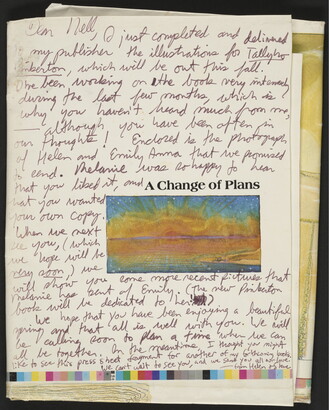 Dear Nell, I just completed and delivered
my publisher the illustrations for Tallyho
Pinkerton, which will be out this fall.
I've been working on the book very intensely
during the last few months which is
why you haven't heard much from me,
— although you have been often in
our thoughts! Enclosed is the photograph
of Helen and Emily Anna that we promised
to send. Melanie was so happy to hear
that you liked it, and
A Change of Plans
that you wanted
your own copy.
When we next
see you, (which
we hope will be
very soon,) we
will show you some more recent pictures that
Melanie has sent of Emily. (The new Pinkerton
book will be dedicated to her)
We hope that you have been enjoying a beautiful
spring and that all is well with you. We will
be calling soon to plan a time when we can
all be together. In the meantime I thought you might
like to see this press sheet fragment for another of my forthcoming books.
We can't wait to see you, and we send you all our love.
from Helen &